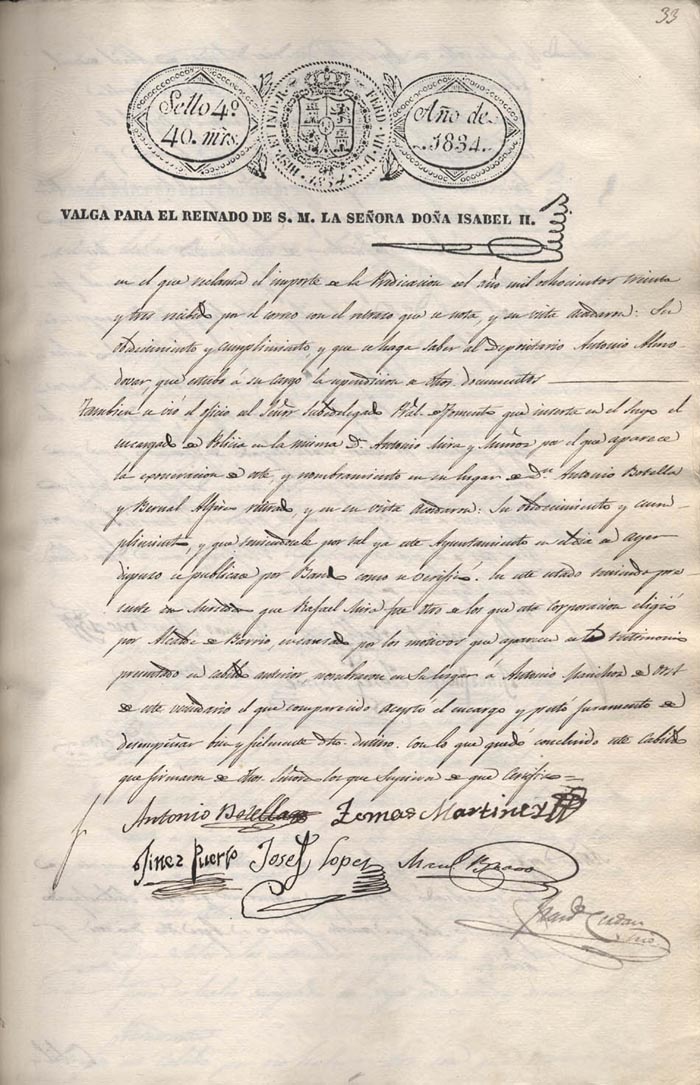 33
Sello 4º
40. mrs.
HISP. ET IND. R. FERD. VII. D. G. 1834
Año de
1834.
VALGA PARA EL REINADO DE S. M. LA SEÑORA DOÑA ISABEL II.
en el que reclama el importe de la Predicacion del año mil ochocientos treinta
y tres recibido por el correo con el retraso que se nota, y en su vista acordaron: Su
obedecimiento y cumplimiento y que se haga saber al Depositario Antonio Almo-
dovar que estubo á su cargo la rendicion de dhos. documentos
Tambien se vió el oficio del Señor Subdelegado Pral. de Fomento que inserta en el suyo el
encargado de Policia en la misma Dn. Antonio Mira y Muñoz por el que aparece
la exoneracion de este, y nombramiento en su lugar de Dn. Antonio Botella
y Bernal y en su vista acordaron: Su obedecimiento y cum-
plimiento, y que teniendosele por tal ya este Ayuntamiento en el dia de ayer
dispuso se publicase por Bando como se verificó. En este estado teniendo pre-
sente sus Mercedes que Rafael Mira fue otro de los que esta corporacion eligió
por Alcalde de Barrio, escusado por los motivos que aparecen de testimonio
presentado en cabildo anterior, nombraron en su lugar á Antonio Manchon de
de este vecindario el que comparecido aceptó el encargo y prestó juramento de
desempeñar bien y fielmente dho. destino. Con lo que quedó concluido este Cabildo
que firmaron de dhos. Señores los que supieron de que Certifico =
Antonio Botella Tomas Martinez
Ginez Puerto Josef Lopez Bravo